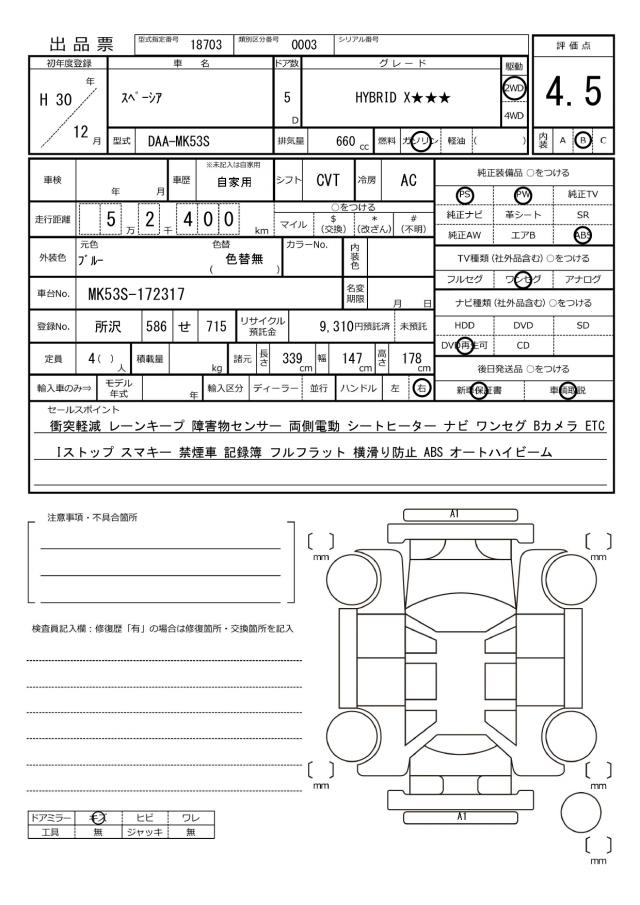 出品票 型式指定番号 18703 類別区分番号 0003 シリアル番号
評価点
4.5
内装 A B C
初年度登録 車名 ドア数 グレード 駆動
H 30 年 12 月
スペーシア 5 D HYBRID X★★★ 2WD 4WD
型式 DAA-MK53S 排気量 660 cc 燃料 ガソリン 軽油 ( )
車検 年 月 車歴 ※未記入は自家用 自家用 シフト CVT 冷房 AC
走行距離 5 万 2 千 400 km ○をつける
マイル $(交換) *(改ざん) #(不明)
外装色 元色 ブルー 色替 ( 色替無 ) カラーNo. 内装色
車台No. MK53S-172317 名変期限 月 日
登録No. 所沢 586 せ 715 リサイクル預託金 9,310円預託済 未預託
定員 4( )人 積載量 kg 諸元 長さ 339cm 幅 147cm 高さ 178cm
輸入車のみ⇒ モデル年式 年 輸入区分 ディーラー 並行 ハンドル 左 右
純正装備品 ○をつける
PS PW 純正TV
純正ナビ 革シート SR
純正AW エアB ABS
TV種類 (社外品含む) ○をつける
フルセグ ワンセグ アナログ
ナビ種類 (社外品含む) ○をつける
HDD DVD SD
DVD再生可 CD
後日発送品 ○をつける
新車保証書 車輌取説
セールスポイント
衝突軽減 レーンキープ 障害物センサー 両側電動 シートヒーター ナビ ワンセグ Bカメラ ETC
Iストップ スマキー 禁煙車 記録簿 フルフラット 横滑り防止 ABS オートハイビーム
注意事項・不具合箇所
検査員記入欄：修復歴「有」の場合は修復箇所・交換箇所を記入
A1
〔 〕mm 〔 〕mm
〔 〕mm 〔 〕mm
A1
〔 〕mm
ドアミラー キズ ヒビ ワレ
工具 無 ジャッキ 無